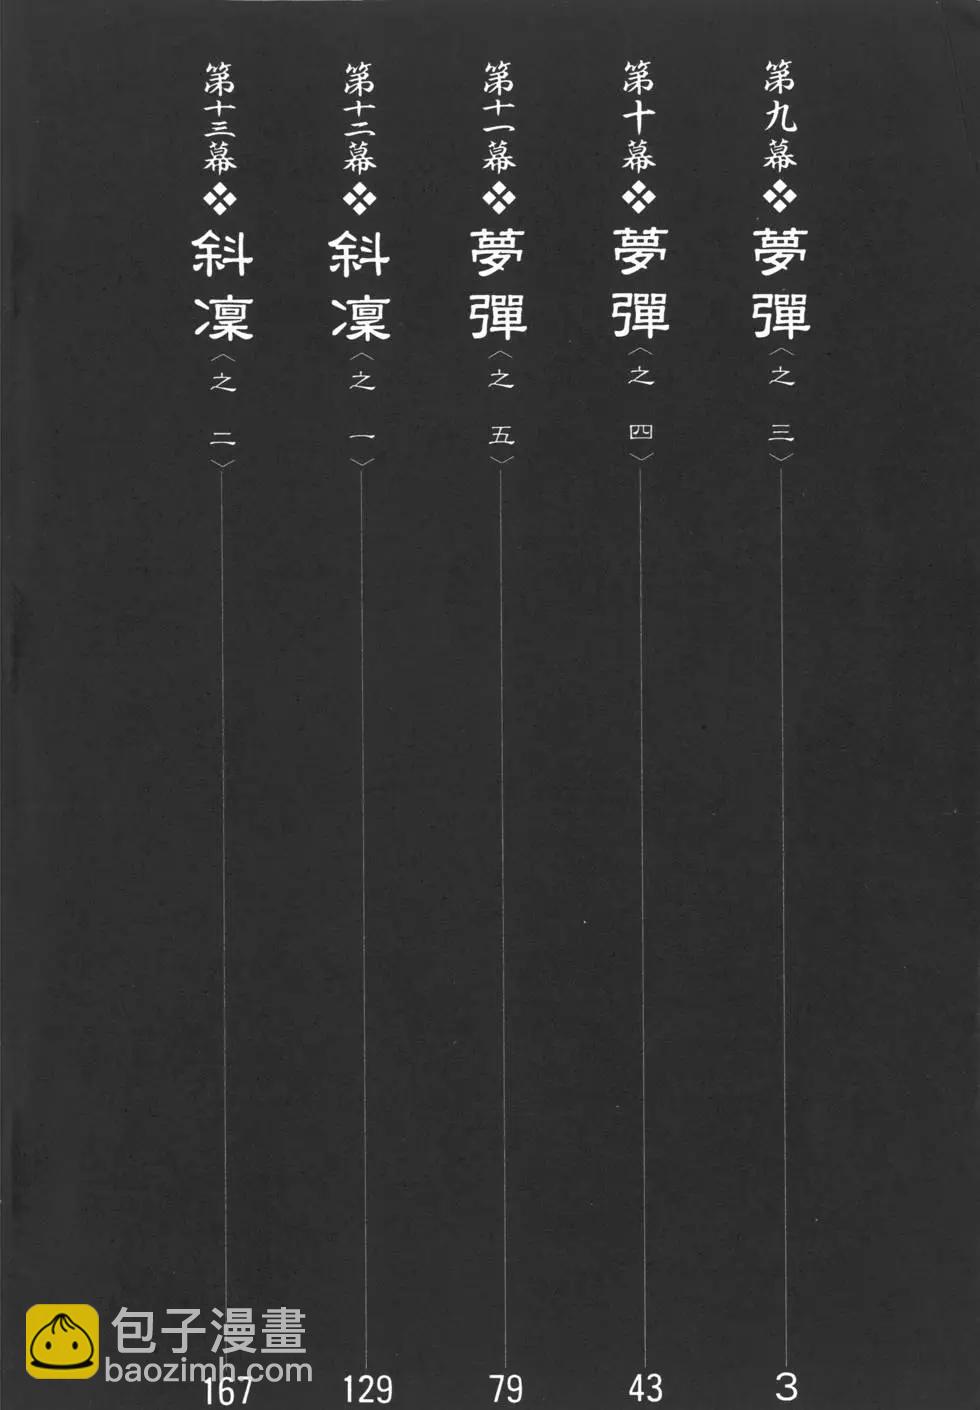 第九幕❖夢彈〈之三〉3
第十幕❖夢彈〈之四〉43
第十一幕❖夢彈〈之五〉79
第十二幕❖斜凜〈之一〉129
第十三幕❖斜凜〈之二〉167
包子漫畫
baozimh.com